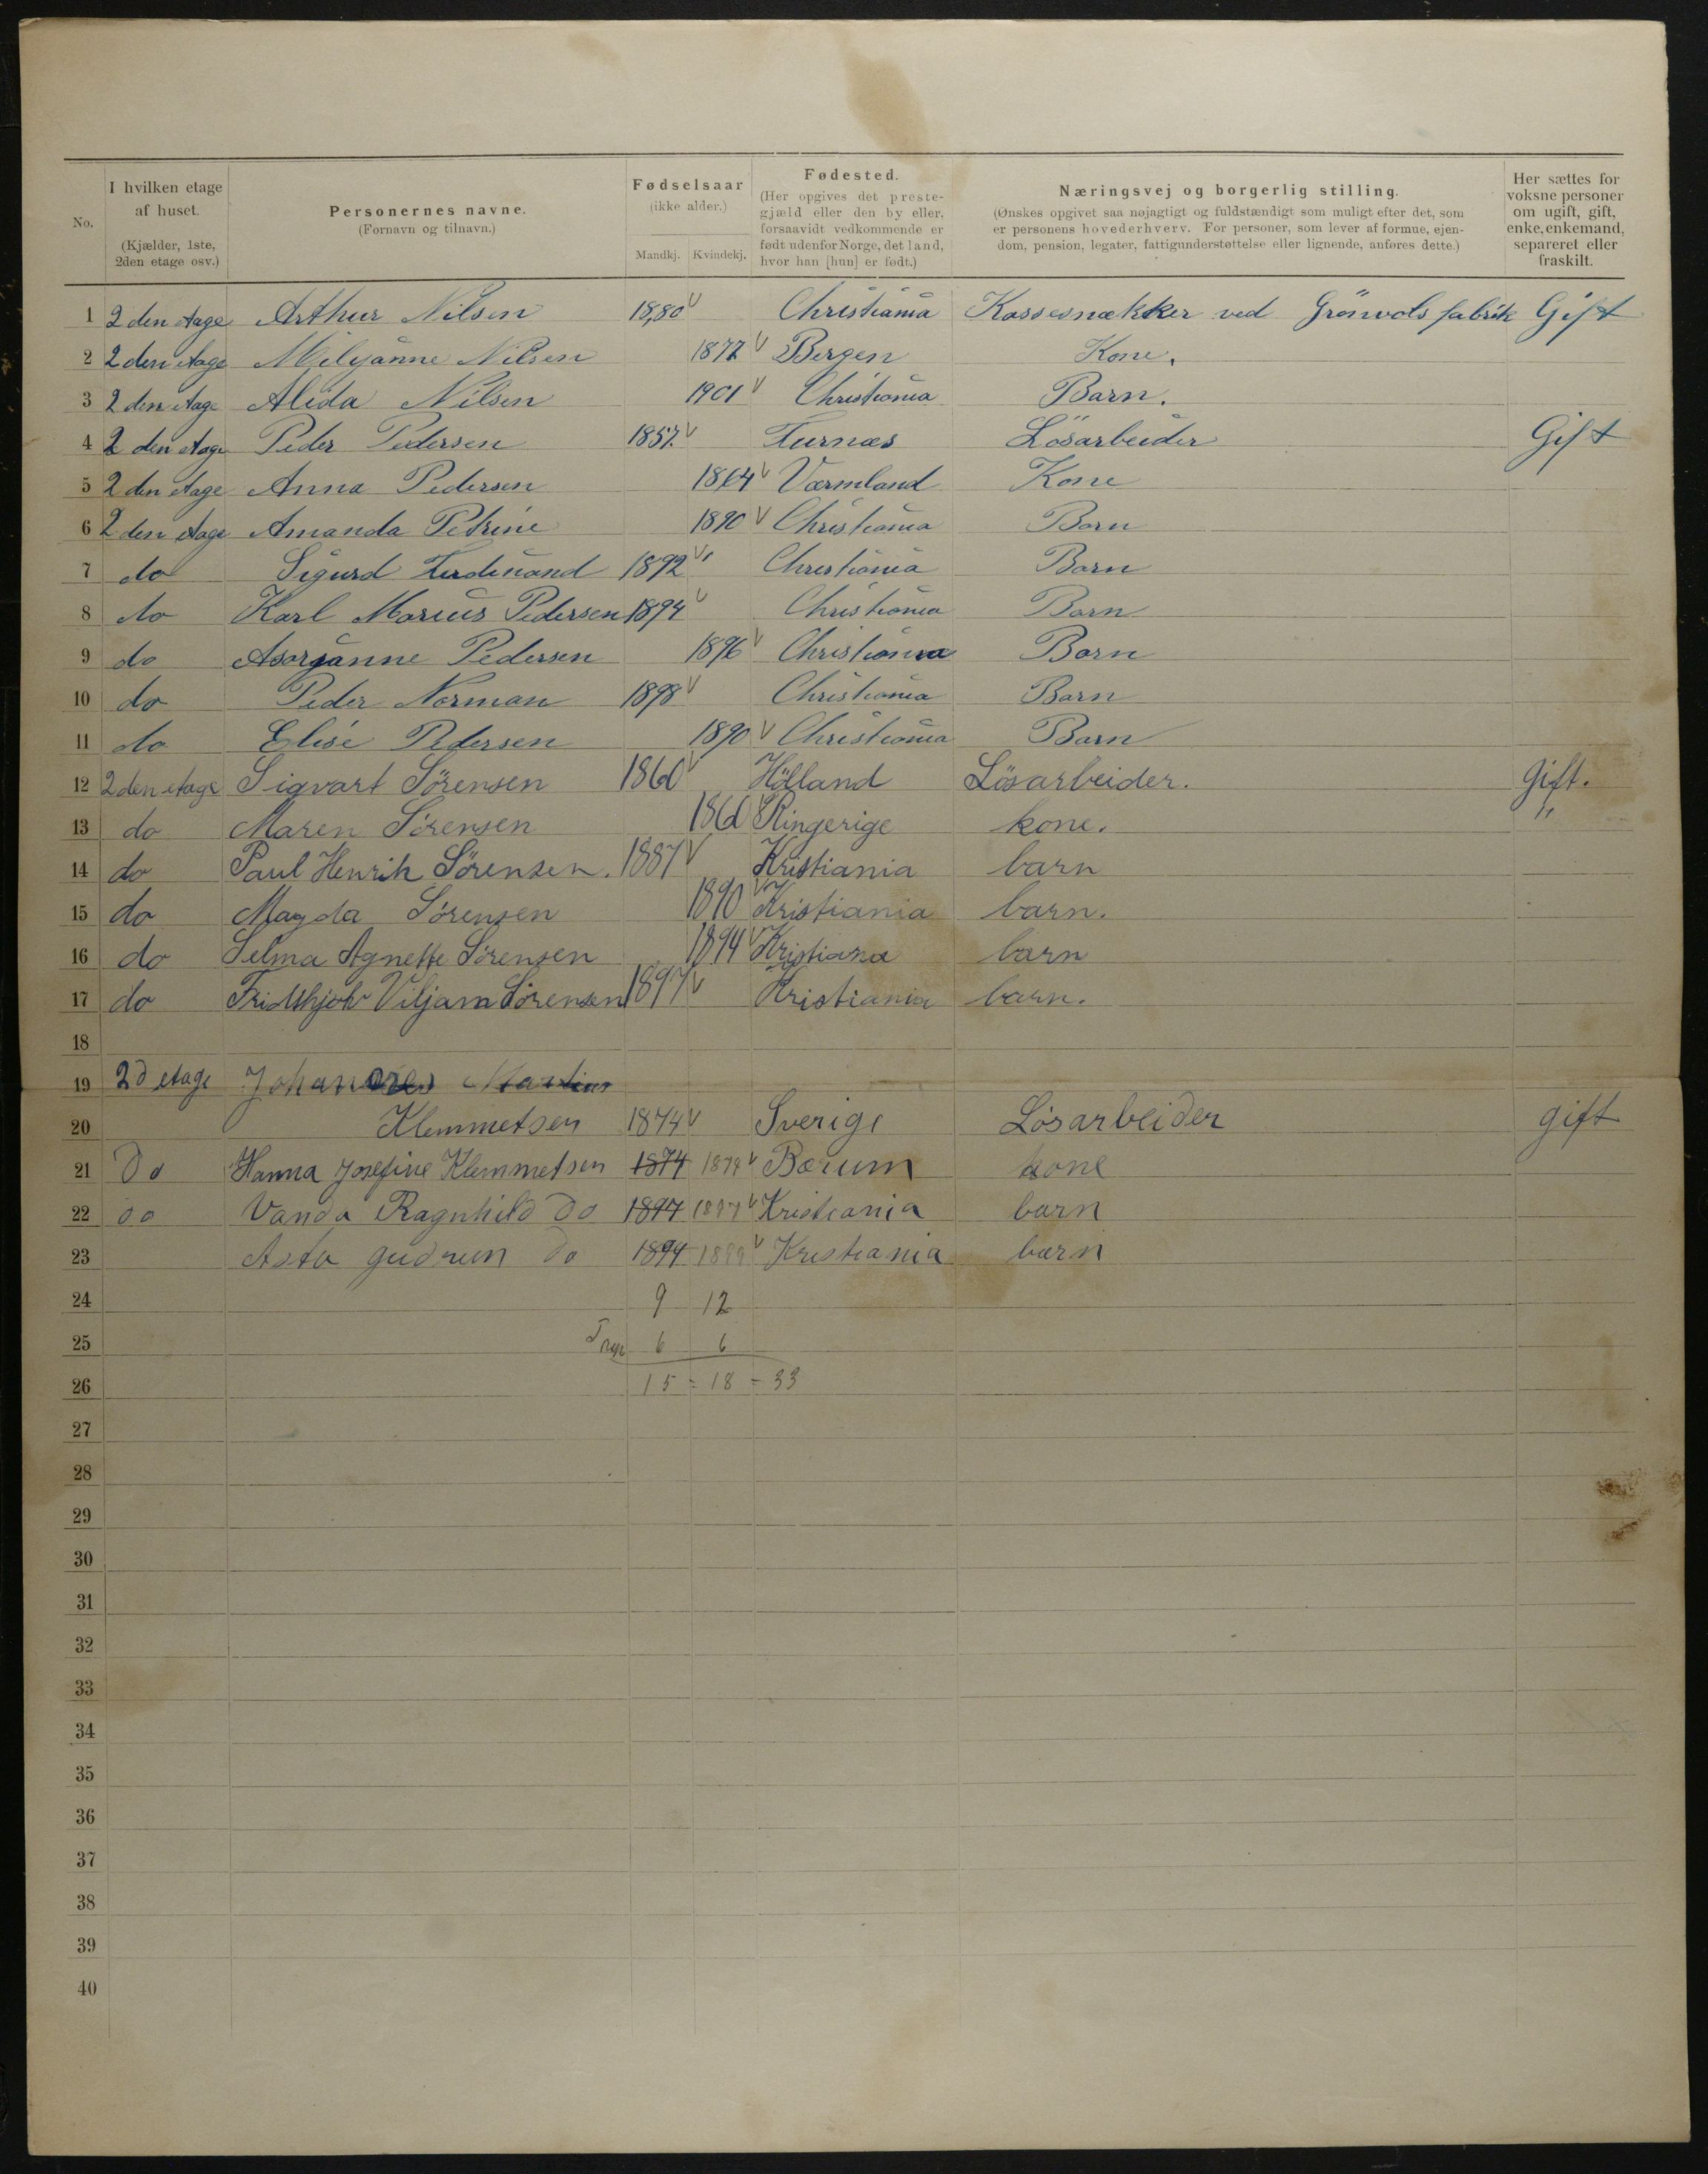 No. | I hvilken etage af huset. (Kjælder, 1ste, 2den etage osv.) | Personernes navne. (Fornavn og tilnavn.) | Fødselsaar (ikke alder.) Mandkj. Kvindekj. | Fødested. (Her opgives det prestegjæld eller den by eller, forsaavidt vedkommende er født udenfor Norge, det land, hvor han [hun] er født.) | Næringsvej og borgerlig stilling. (Ønskes opgivet saa nøjagtigt og fuldstændigt som muligt efter det, som er personens hovederhverv. For personer, som lever af formue, ejendom, pension, legater, fattigunderstøttelse eller lignende, anføres dette.) | Her sættes for voksne personer om ugift, gift, enke, enkemand, separeret eller fraskilt.
1 2 den etage Arthur Nilsen 1880 Christiania Kassesnækker ved Grönvols fabrik Gift
2 2 den etage Miljanne Nilsen 1877 Bergen Kone.
3 2 den etage Alida Nilsen 1901 Christiania Barn.
4 2 den etage Peder Pedersen 1857. Furnæs Lösarbeider Gift
5 2 den etage Anna Pedersen 1864 Værmland Kone
6 2 den etage Amanda Petrine 1890 Christiania Barn
7 do Sigurd Ferdinand 1892 Christiania Barn
8 do Karl Marius Pedersen 1894 Christiania Barn
9 do Asorganne Pedersen 1896 Christiania Barn
10 do Peder Norman 1898 Christiania Barn
11 do Elise Pedersen 1890 Christiania Barn
12 2 den etage Sigvart Sørensen 1860 Hölland Lösarbeider. Gift.
13 do Maren Sörensen 1860 Ringerige kone. "
14 do Paul Henrik Sörensen. 1887 Kristiania barn
15 do Magda Sörensen 1890 Kristiania barn.
16 do Selma Agnette Sörensen 1894 Kristiana barn
17 do Viljam Sörensen 1897 Kristiania barn.
18
19 2d etage Johannes Martius
20 Klemmetsen 1874 Sverige Lösarbeider gift
21 Do Hanna Josefine Klemmetsen 1874 1879 Bærum kone
22 do Vanda Ragnhild Do 1897 1897 Kristiania barn
23 Asta gudrun Do 1894 1899 Kristiania barn
24 9 12
25 6 6
26 15 = 18 = 33
27
28
29
30
31
32
33
34
35
36
37
38
39
40